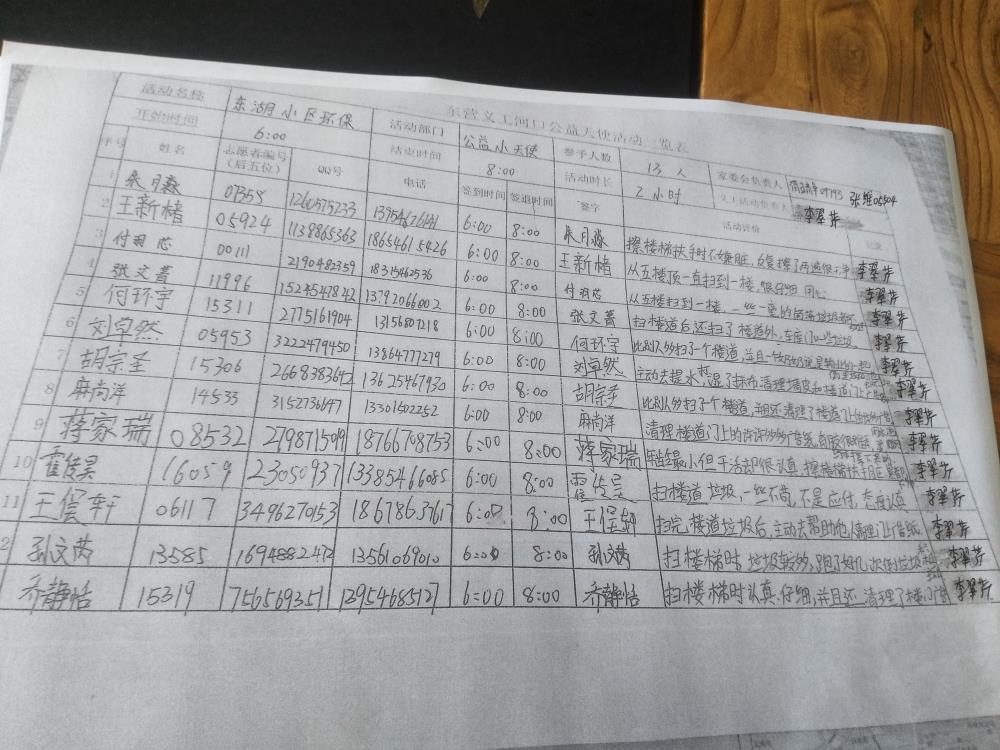 东营义工河口公益天使活动一览表
活动名称 东湖小区环保 活动部门 公益小天使 参予人数 13人 家委会负责人 张 06504
开始时间 6:00 结束时间 8:00 活动时长 2小时 义工活动负责人 李翠芳
序号 姓名 志愿者编号（后五位） QQ号 电话 签到时间 签退时间 签字 活动评价 记录
1 朱月淼 07358 1260575233 6:00 8:00 朱月淼 擦楼梯扶手时不嫌脏，反复擦了两遍很干净 李翠芳
2 王新楮 05924 1138865363 18654615426 6:00 8:00 王新楮 从五楼顶一直扫到一楼，很仔细 用心 李翠芳
3 付羽芯 00111 2190482359 18315462536 6:00 8:00 付羽芯 从五楼扫到一楼，一丝一毫的 李翠芳
4 张文菁 11996 1524547842 13792066002 6:00 8:00 张文菁 扫楼道后，还扫了楼道外，车库门 李翠芳
5 何环宇 15311 2775161904 13156807218 6:00 8:00 何环宇 比别人多扫了一个楼道，并且 李翠芳
6 刘卓然 05953 3222479450 13864777279 6:00 8:00 刘卓然 主动去提水，湿了抹布清理墙皮和楼道门上 李翠芳
7 胡宗圣 15306 2668383642 13625467930 6:00 8:00 胡宗圣 比别人多扫了个楼道，并且还清理了楼道门上的 李翠芳
8 麻尚洋 14533 3152736147 13301502252 6:00 8:00 麻尚洋 清理楼道门上的许许多多广告纸 李翠芳
9 蒋家瑞 08532 2798715019 18766708753 6:00 8:00 蒋家瑞 年龄最小但干活却很认真，擦楼梯扶手 李翠芳
10 霍传昊 16059 23050937 13385466085 6:00 8:00 霍传昊 扫楼道垃圾，一丝不苟，不是应付，态度认真 李翠芳
11 王偀轩 06117 349627053 18678637617 6:00 8:00 扫完楼道垃圾后，主动去帮助他人清理门上广告纸 李翠芳
2 孙文芮 13585 1694882472 13561069010 6:00 8:00 孙文芮 扫楼梯时，垃圾较多，跑了好几次倒垃圾 李翠芳
乔静怡 15319 756569351 12954685127 6:00 8:00 乔静怡 扫楼梯时认真、仔细，并且还清理了楼门 李翠芳